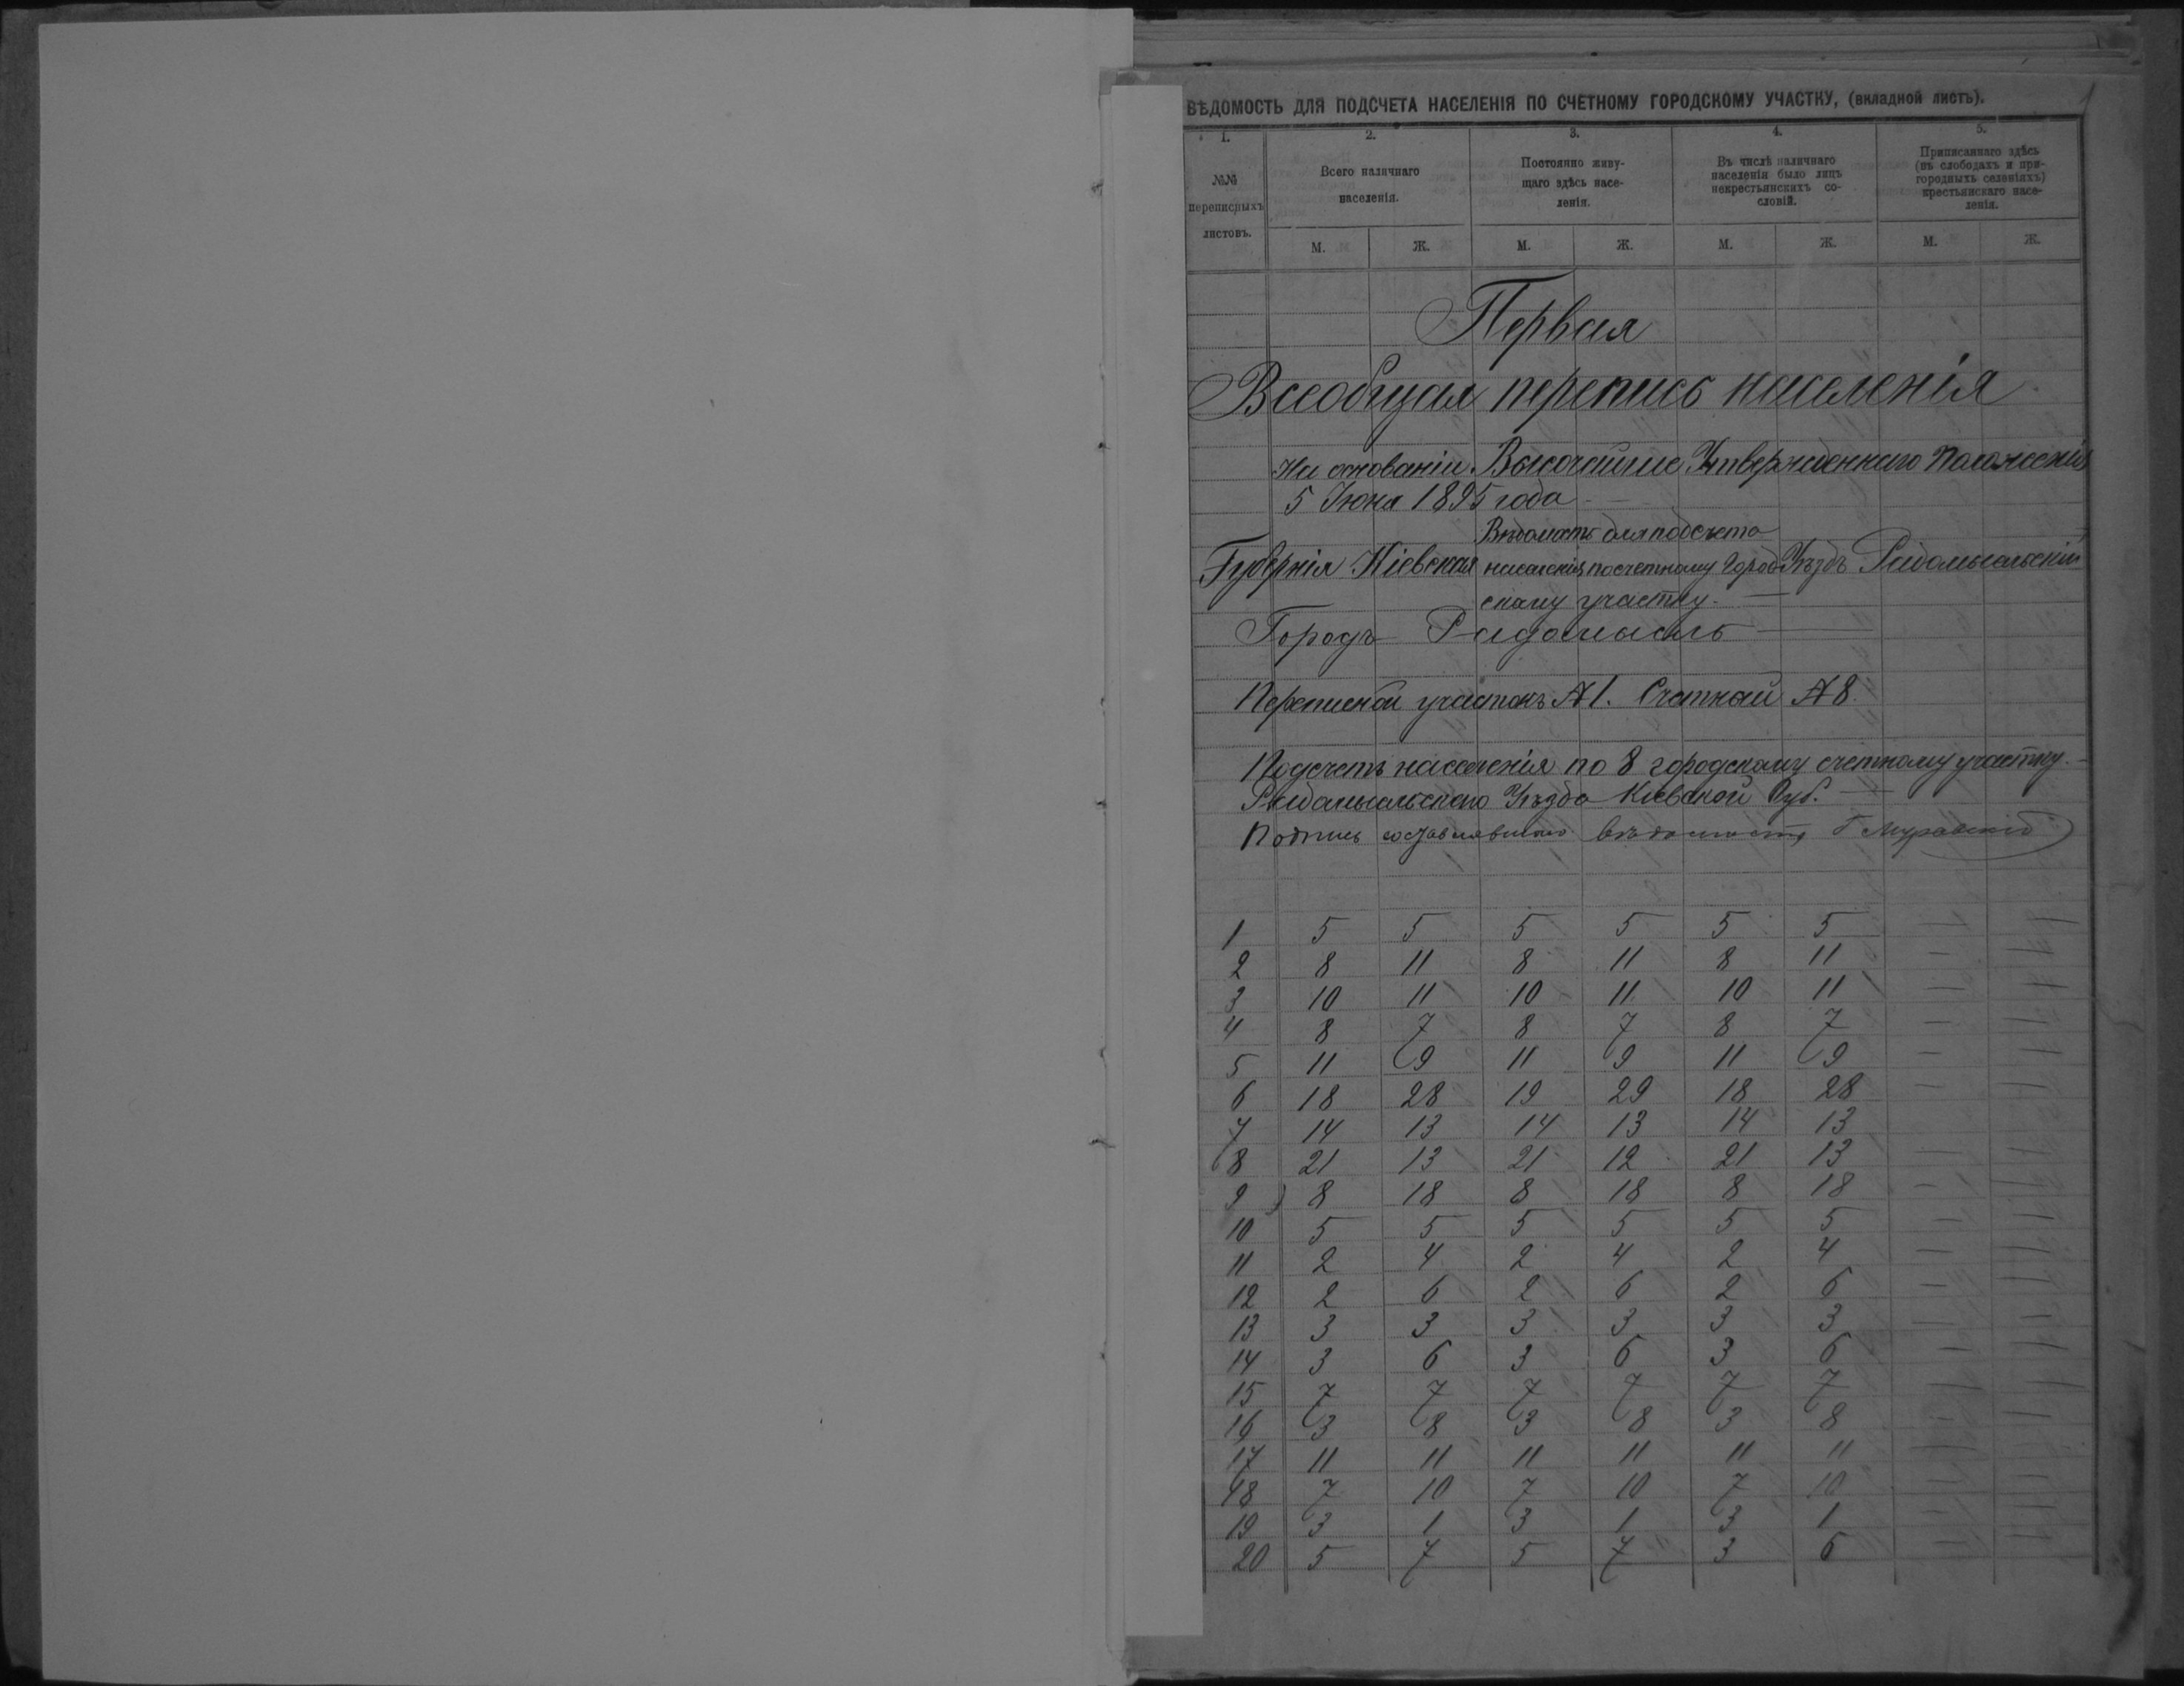 ВѢДОМОСТЬ ДЛЯ ПОДСЧЕТА НАСЕЛЕНІЯ ПО СЧЕТНОМУ ГОРОДСКОМУ УЧАСТКУ, (вкладной листъ).
1. 2. 3. 4. 5.
№№ переписныхъ листовъ.
Всего наличнаго населенія.
Постоянно живу-
щаго здѣсь насе-
ленія.
Въ числѣ наличнаго
населенія было лицъ
некрестьянскихъ со-
словій.
Приписаннаго здѣсь
(въ слободахъ и при-
городныхъ селеніяхъ)
крестьянскаго насе-
ленія.
М. Ж. М. Ж. М. Ж. М. Ж.
Первая
Всеобщая перепись населенія
На основаніи Высочайше Утвержденнаго Положенія
5 Іюня 1895 года
Вѣдомость для подсчета
Губернія Кіевская населенія по счетному город Уѣздъ Радомысльскій
скому участку.
Городъ Радомысль
Переписной участокъ № 1. Счетный № 8
Подсчетъ населенія по 8 городскому счетному участку
Радомысльскаго Уѣзда Кіевской Губ.
Подпись составлявшаго вѣдомость Г Муравскій
1 5 5 5 5 5 5 — —
2 8 11 8 11 8 11 — —
3 10 11 10 11 10 11 — —
4 8 7 8 7 8 7 — —
5 11 9 11 9 11 9 — —
6 18 28 19 29 18 28 — —
7 14 13 14 13 14 13
8 21 13 21 12 21 13 — —
9 8 18 8 18 8 18 — —
10 5 5 5 5 5 5 — —
11 2 4 2 4 2 4 — —
12 2 6 2 6 2 6 — —
13 3 3 3 3 3 3 — —
14 3 6 3 6 3 6 — —
15 7 7 7 7 7 7 — —
16 3 8 3 8 3 8 — —
17 11 11 11 11 11 11 — —
18 7 10 7 10 7 10 — —
19 3 1 3 1 3 1 — —
20 5 7 5 7 3 6 — —